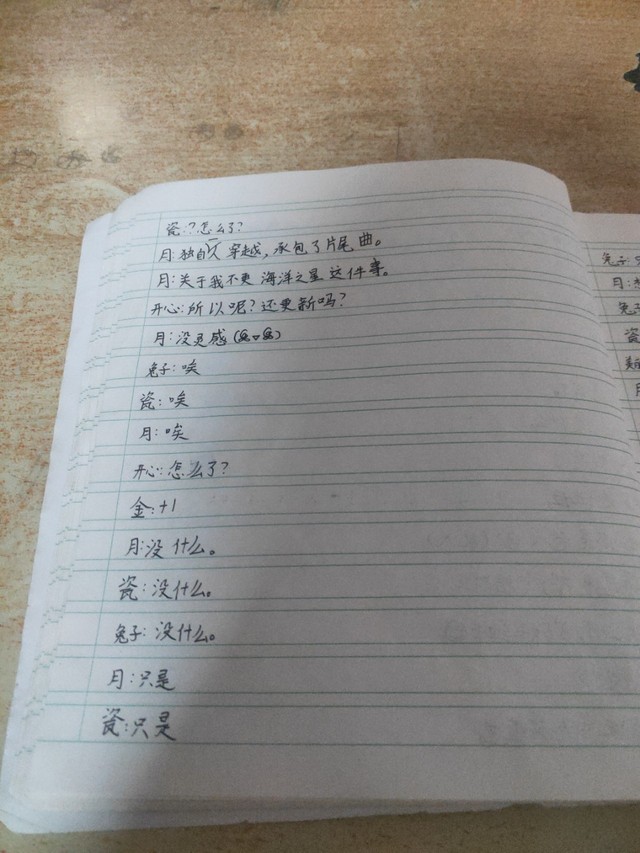 瓷:?怎么了?
月:独自人穿越,承包了片尾曲。
月:关于我不更海洋之星这件事。
开心:所以呢?还更新吗?
月:没灵感
兔子:唉
瓷:唉
月:唉
开心:怎么了?
金:+1
月:没什么。
瓷:没什么。
兔子:没什么。
月:只是
瓷:只是
兔子
月:
兔子
瓷
月